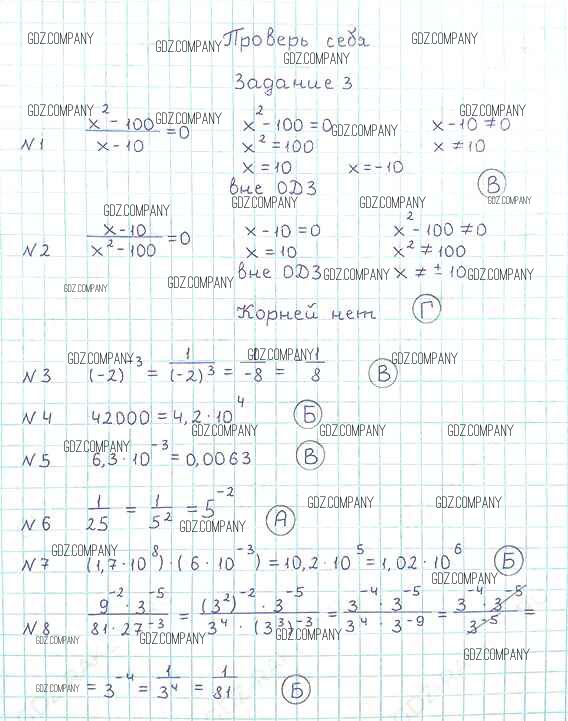 GDZ.COMPANY GDZ.COMPANY Проверь себя GDZ.COMPANY
GDZ.COMPANY
Задание 3
GDZ.COMPANY GDZ.COMPANY GDZ.COMPANY
№1 (x² - 100)/(x - 10) = 0 x² - 100 = 0 GDZ.COMPANY x - 10 ≠ 0
x² = 100 x ≠ 10
x = 10 x = -10
вне ОДЗ В
GDZ.COMPANY GDZ.COMPANY GDZ.COMPANY GDZ.COMPANY
№2 (x - 10)/(x² - 100) = 0 x - 10 = 0 x² - 100 ≠ 0
x = 10 x² ≠ 100
вне ОДЗ GDZ.COMPANY x ≠ ± 10 GDZ.COMPANY
GDZ.COMPANY GDZ.COMPANY
Корней нет Г
GDZ.COMPANY GDZ.COMPANY GDZ.COMPANY
№3 (-2)⁻³ = 1/(-2)³ = 1/-8 = -1/8 В
№4 42000 = 4,2 · 10⁴ Б
GDZ.COMPANY GDZ.COMPANY GDZ.COMPANY
GDZ.COMPANY
№5 6,3 · 10⁻³ = 0,0063 В
№6 1/25 = 1/5² = 5⁻² А
GDZ.COMPANY GDZ.COMPANY GDZ.COMPANY
GDZ.COMPANY
№7 (1,7 · 10⁸) · (6 · 10⁻³) = 10,2 · 10⁵ = 1,02 · 10⁶ Б
GDZ.COMPANY
№8 (9⁻² · 3⁻⁵)/(81 · 27⁻³) = ((3²)⁻² · 3⁻⁵)/(3⁴ · (3³)⁻³) = (3⁻⁴ · 3⁻⁵)/(3⁴ · 3⁻⁹) = (3⁻⁴ · 3⁻⁵)/3⁻⁵ =
GDZ.COMPANY GDZ.COMPANY GDZ.COMPANY GDZ.COMPANY
GDZ.COMPANY = 3⁻⁴ = 1/3⁴ = 1/81 Б